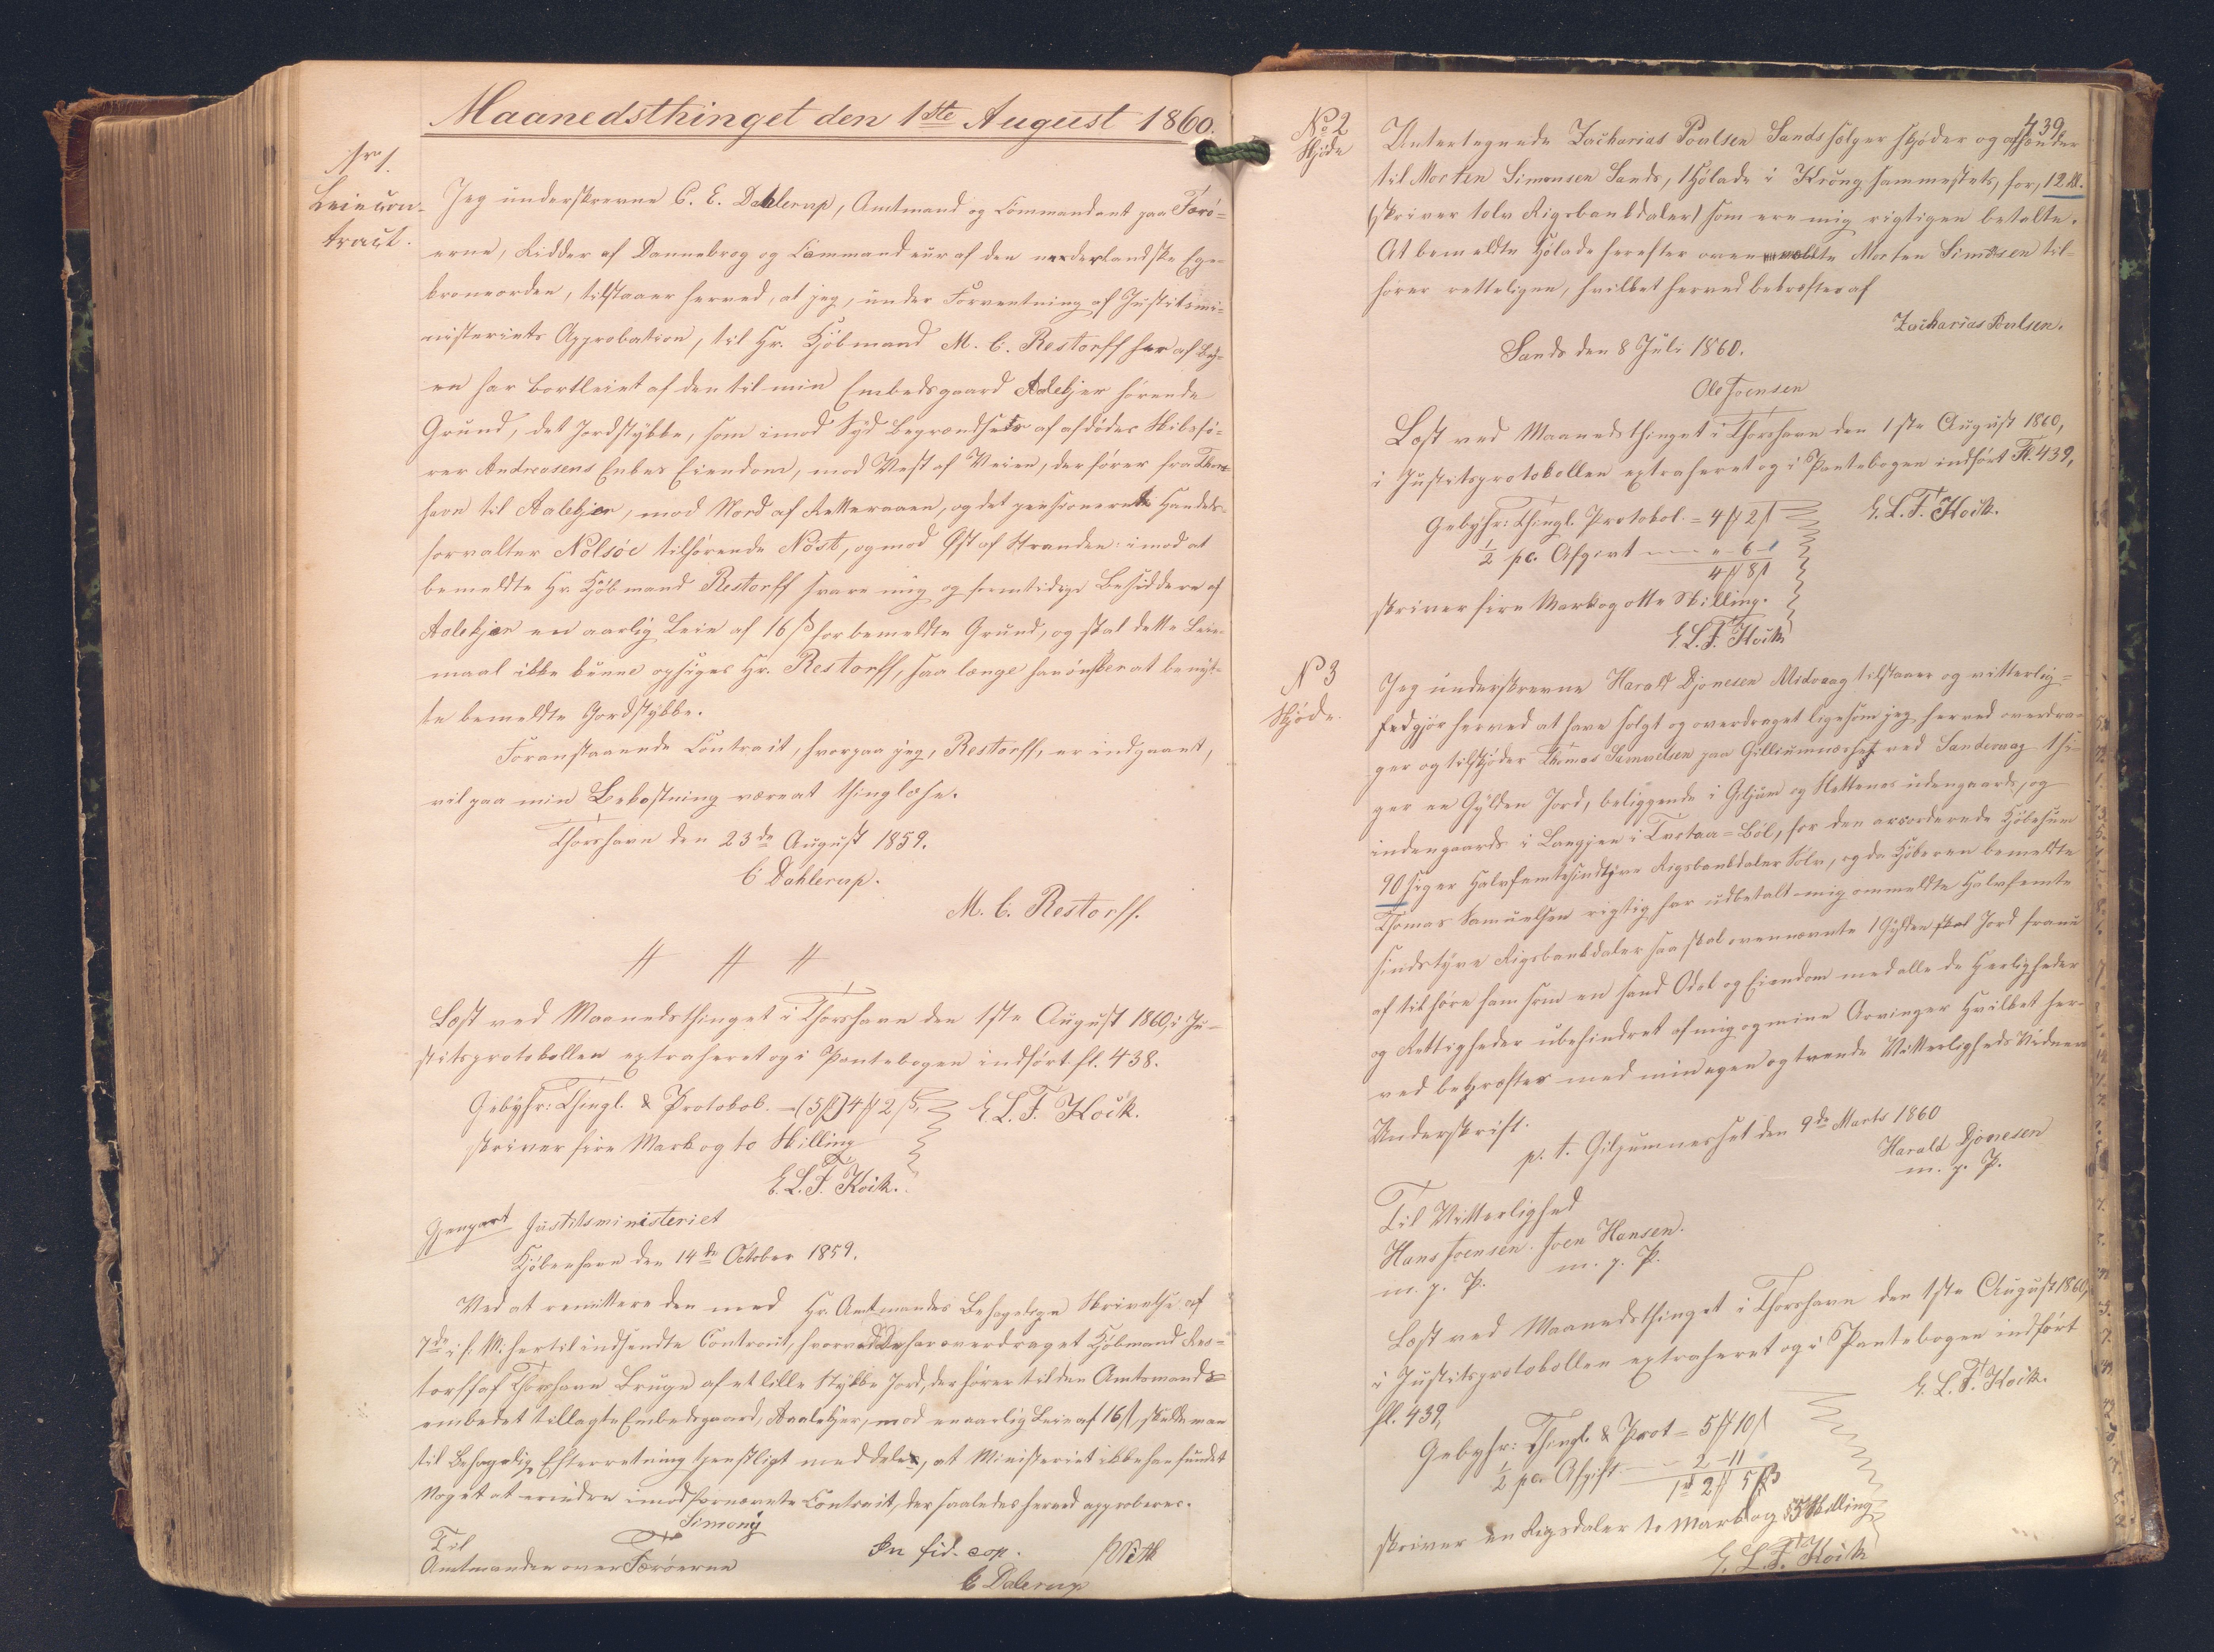 Maanedsthinget den 1ste August 1860.
No 1.
Leiecon-
tract.
Jeg underskrevne C. E. Dahlerup, Amtmand og Commandant paa Færö-
erne, Ridder af Dannebrog og Commandeur af den nederlandske Ege-
kroneorden, tilstaaer herved, at jeg, under Forventning af Justitsmi-
nisteriets Approbation, til Hr. Kjöbmand M. C. Restorff her af By-
en har bortleiet af den til min Embedsgaard Aalekjer hörende
Grund, det Jordstykke, som imod Syd begrændses af afdödes Skibsfö-
rer Andreasens Enkes Eiendom, mod Vest af Veien, der förer fra Thors-
havn til Aalekjer, mod Nord af Retteraaen, og det pensionerede Handels-
forvalter Nolsöe tilhörende Nöst, og mod Öst af Stranden: imod at
bemeldte Hr. Kjöbmand Restorff svare mig og fremtidige Besiddere af
Aalekjer en aarlig Leie af 16 ß for bemeldte Grund, og skal dette Leie-
maal ikke kunne opsiges Hr. Restorff, saa længe han önsker at benyt-
te bemeldte Jordstykke.
Foranstaaende Contract, hvorpaa jeg, Restorff, er indgaaet,
vil paa min Bekostning være at thinglæse.
Thorshavn den 23de August 1859.
C Dahlerup.
M. C. Restorff.
Læst ved Maanedsthinget i Thorshavn den 1ste August 1860, i Ju-
stitsprotokollen extraheret og i Pantebogen indfört fl. 438.
Gebyhr: Thingl. & Protokol. = (5 ß) 4 # 2 ß,
E. L. T. Koik.
skriver fire Mark og to Skilling
E. L. T. Koik.
Gjenpart Justitsministeriet
Kjöbenhavn den 14de October 1859.
Ved at remittere den med Hr. Amtmandes behagelige Skrivelse af
7de f. M. hertil indsendte Contract, hvorved De har overdraget Kjöbmand Res-
torff af Thorshavn Bruge af et lille Stykke Jord, der hörer til den Amtmands-
embedet tillagte Embedsgaard, Aalekjer, mod en aarlig Leie af 16 ß, skulde man
til behagelig Efterretning tjenstligt meddele, at Ministeriet ikke har fundet
Noget at erindre imod fornævnte Contract, der saaledes herved approberes.
Simony
Til
Amtmanden over Færöerne
In fid. cop.
C Dalerup
439.
No 2
Skjöde
Undertegnede Zacharias Poulsen Sands sælger skjöder og afhænder
til Morten Simonsen Sands, 1 Hjölade i Krong sammestets, for, 12 Rd.
(skriver tolv Rigsbankdaler) som ere mig rigtigen betalte.
At bemeldte Hjölade herefter ovenmeldte Morten Simonsen til-
hörer retteligen, hvilket herved bekræftes af
Zacharias Poulsen.
Sands den 8 Juli 1860.
Ole Joensen
Læst ved Maanedsthinget i Thorshavn den 1ste August 1860,
i Justitsprotokollen extraheret og i Pantebogen indfört Fl. 439,
Gebyhr: Thingl. Protokol. = 4 # 2 ß
E. L. T. Koik.
½ pc. Afgivt " - 6 -
4 # 8 ß
skriver fire Mark og otte Skilling.
E. L. T. Koik
No 3
Skjöde.
Jeg underskrevne Harald Djonesen Midvaag tilstaaer og vitterlig-
hedgjör herved at have solgt og overdraget ligesom jeg herved overdra-
ger og tilskjöder Thomas Samuelsen paa Gilliumnærset ved Sandevaag 1 si-
ger en Gylden Jord, beliggende i Giljum og Slettenes udengaards, og
indengaards i Langjen i Tvotaa-Ból, for den accorderede Kjöbesum
90 siger Halvfemtesindtyve Rigsbankdaler Sölv, og da Kjöberen bemeldte
Thomas Samuelsen rigtig har udbetalt mig ommeldte Halvfemte
sindstyve Rigsbankdaler saa skal ovennævnte 1 Gylden Jord fra nu
af tilhöre ham som en sand Odel og Eiendom med alle de Herligheder
og Rettigheder ubehindret af mig og mine Arvinger Hvilket her-
ved bekræftes med min egen og tvende Vitterligheds Vidners
Underskrift.
p. t. Giljumnerset den 9de Marts 1860
Harald Djonesen
m. p. P.
Til Vitterlighed
Hans Joensen. Joen Hansen.
m. p. P. m. p. P.
Læst ved Maanedsthinget i Thorshavn den 1ste August 1860,
i Justitsprotokollen extraheret og i Pantebogen indfört
fl. 439,
E. L. T. Koik.
Gebyhr: Thingl. & Prot = 5 # 10 ß
½ pc. Afgift 2 - 11
1 rd 2 # 5 ß
skriver en Rigsdaler to Mark og 5 Skilling
E. L. T. Koik